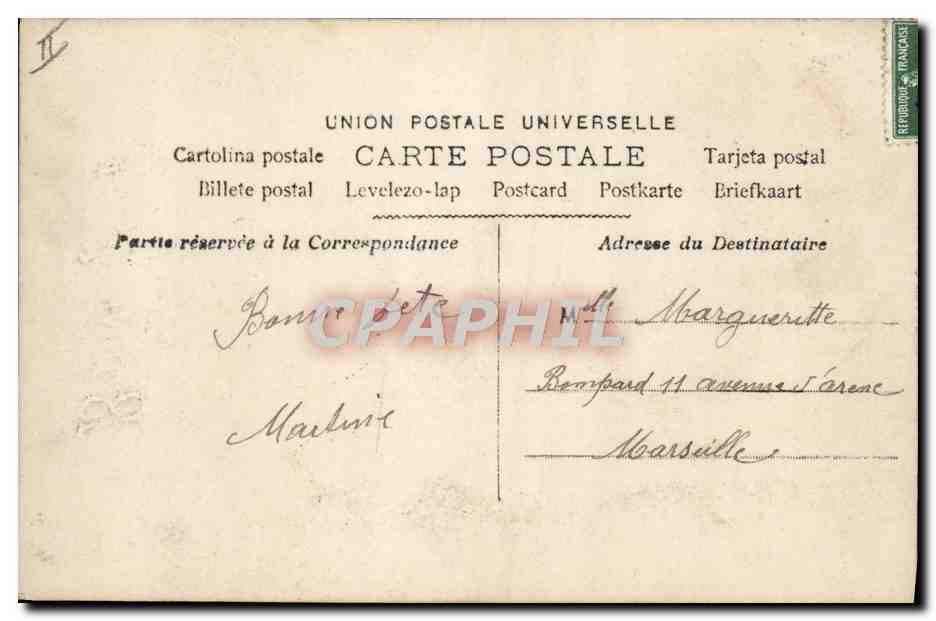 II
REPUBLIQUE FRANÇAISE
UNION POSTALE UNIVERSELLE
Cartolina postale CARTE POSTALE Tarjeta postal
Billete postal Levelezo-lap Postcard Postkarte Briefkaart
Partie réservée à la Correspondance
Adresse du Destinataire
Bonne fete
Martinie
CPAPHIL
Mlle Margueritte
Bompard 11 avenue d'arenc
Marseille